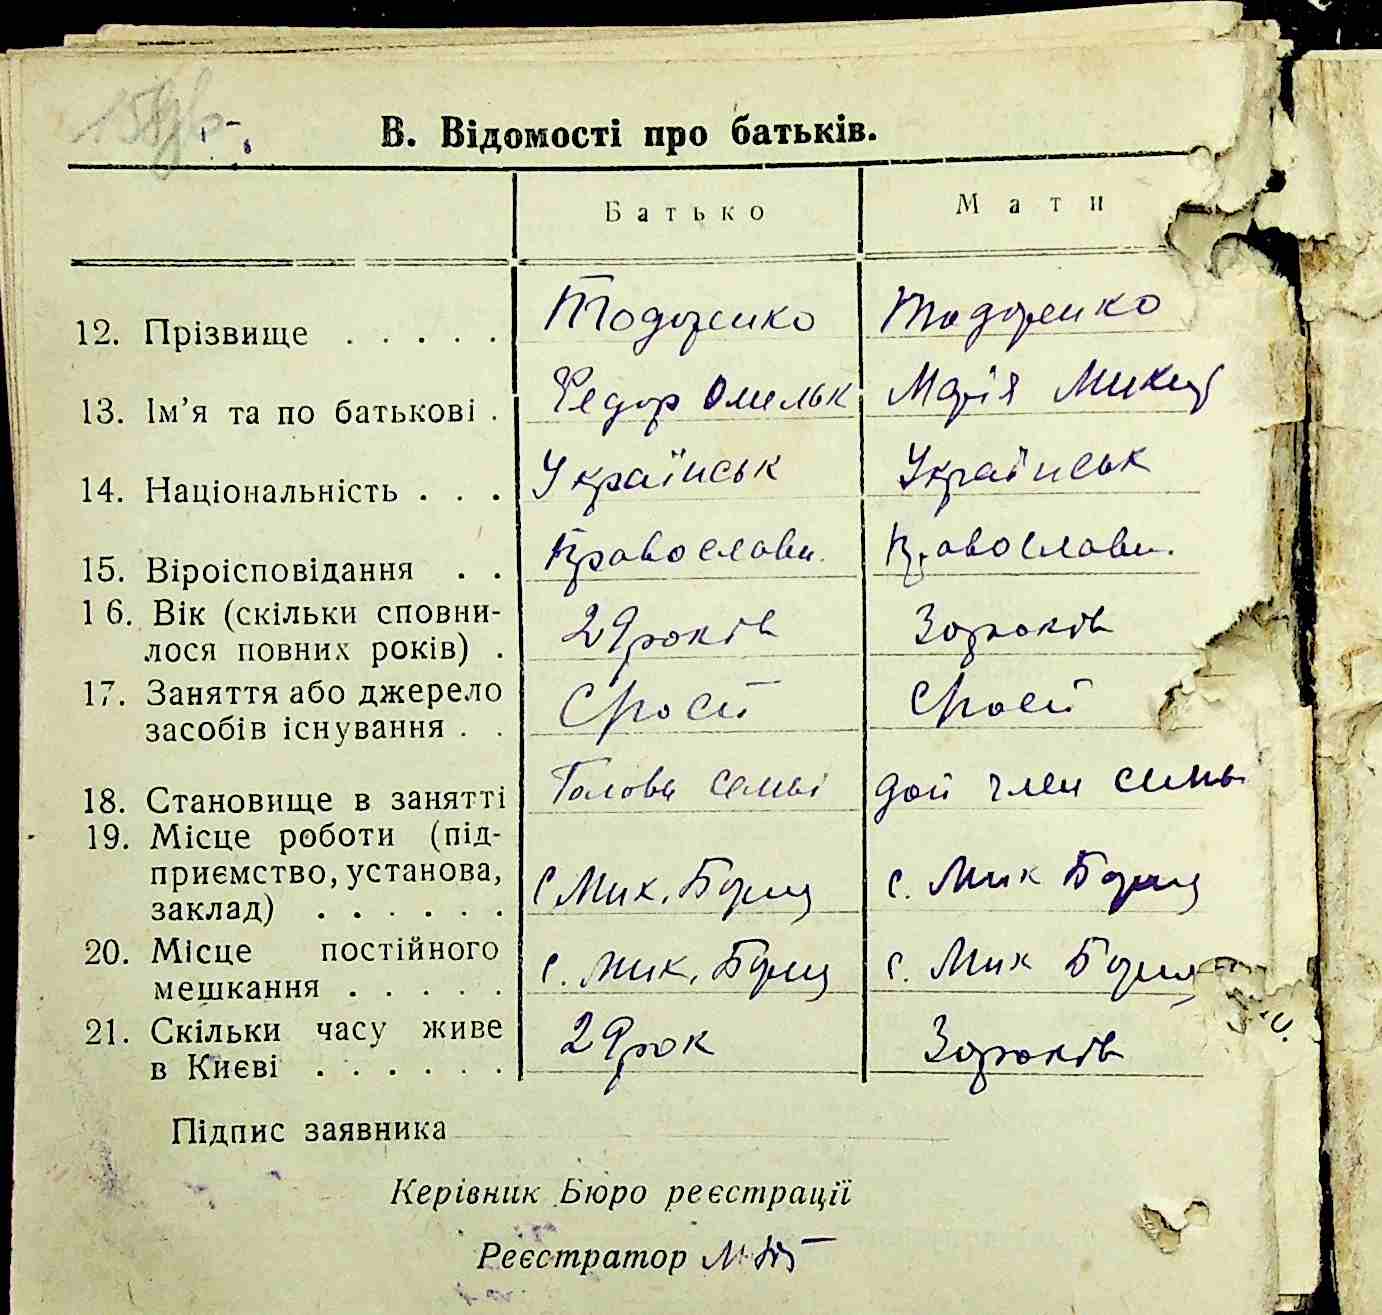 В. Відомості про батьків.
Батько Мати
12. Прізвище . . . . . Тодоренко Тодоренко
13. Ім’я та по батькові . Федор Омельк Марія Микит
14. Національність . . . Українськ Українськ
15. Віроісповідання . . Православн. Православн.
16. Вік (скільки сповни-
лося повних років) . 29 років 30 років
17. Заняття або джерело
засобів існування . .
18. Становище в занятті Голова семьі член семьі
19. Місце роботи (під-
приємство, установа,
заклад) . . . . . . с Мик. Борщ с. Мик Борщ
20. Місце постійного
мешкання . . . . . с. Мик. Борщ с. Мик Борщ
21. Скільки часу живе
в Києві . . . . . . 29 рок 30 років
Підпис заявника
Керівник Бюро реєстрації
Реєстратор